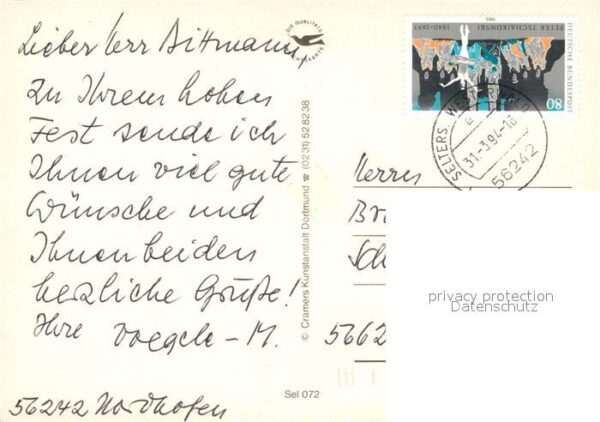 Lieber Herr Bittmann,
zu Ihrem hohen
Fest sende ich
Ihnen viel gute
Wünsche und
Ihnen beiden
herzliche Grüße!
Ihre Voegele-M.
56242 Nordhofen
DIE QUALITÄTS
© Cramers Kunstanstalt Dortmund ☎ (0231) 52 82 38
Sel 072
1993
PETER TSCHAIKOWSKI
1840-1893
DEUTSCHE BUNDESPOST
80
SELTERS, WESTERWALD
31.-3.94-18
56242
Herrn
5662
privacy protection
Datenschutz